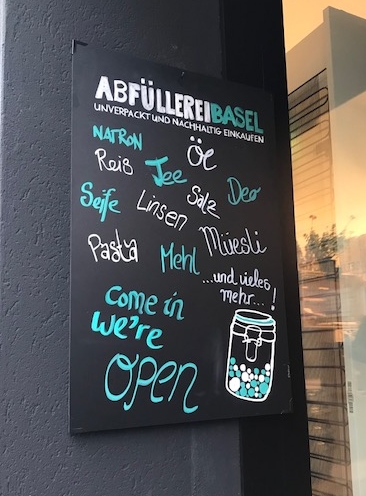 ABFÜLLEREIBASEL
UNVERPACKT UND NACHHALTIG EINKAUFEN
NATRON Öl
Reis Tee
Seife Linsen Salz Deo
Pasta Mehl Müesli
...und vieles
mehr...!
Come in
we're
open